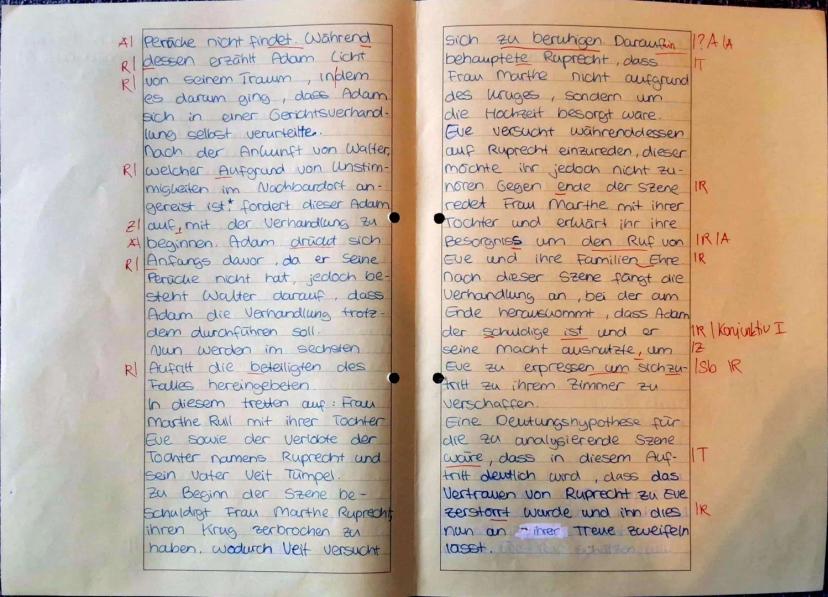 A| Perücke nicht findet. Während
R| dessen erzählt Adam Licht
R| von seinem Traum, indem
es darum ging, dass Adam
sich in einer Gerichtsverhand-
lung selbst verurteilte.
Nach der Ankunft von Walter,
R| welcher Aufgrund von Unstim-
migkeiten im Nachbardorf an-
gereist ist*, fordert dieser Adam
Z| auf, mit der Verhandlung zu
A| beginnen. Adam drückt sich
R| Anfangs davor, da er seine
Perücke nicht hat, jedoch be-
steht Walter darauf, dass
Adam die Verhandlung trotz-
dem durchführen soll.
Nun werden im sechsten
R| Auftritt die beteiligten des
Falles hereingebeten.
In diesem tretten auf: Frau
Marthe Rull mit ihrer Tochter
Eve sowie der Verlobte der
Tochter namens Ruprecht und
sein Vater Veit Tümpel.
Zu Beginn der Szene be-
schuldigt Frau Marthe Ruprecht,
ihren Krug zerbrochen zu
haben. Wodurch Veit versucht
sich zu beruhigen. Daraufhin |?A |A
behauptete Ruprecht, dass |T
Frau Marthe nicht aufgrund
des Kruges, sondern um
die Hochzeit besorgt wäre.
Eve versucht währenddessen
auf Ruprecht einzureden, dieser
möchte ihr jedoch nicht zu-
hören. Gegen ende der Szene |R
redet Frau Marthe mit ihrer
Tochter und erklärt ihr ihre
Besorgniss um den Ruf von |R |A
Eve und ihre Familien Ehre. |R
Nach dieser Szene fängt die
Verhandlung an, bei der am
Ende herauskommt, dass Adam
der schuldige ist und er |R | Konjunktiv I
seine Macht ausnutzte, um |Z
Eve zu erpressen um sich zu- |Sb |R
tritt zu ihrem Zimmer zu
verschaffen.
Eine Deutungshypothese für
die zu analysierende Szene
wäre, dass in diesem Auf- |T
tritt deutlich wird, dass das
Vertrauen von Ruprecht zu Eve
zerstört wurde und ihn dies |R
nun an ihrer Treue zweifeln
lässt.